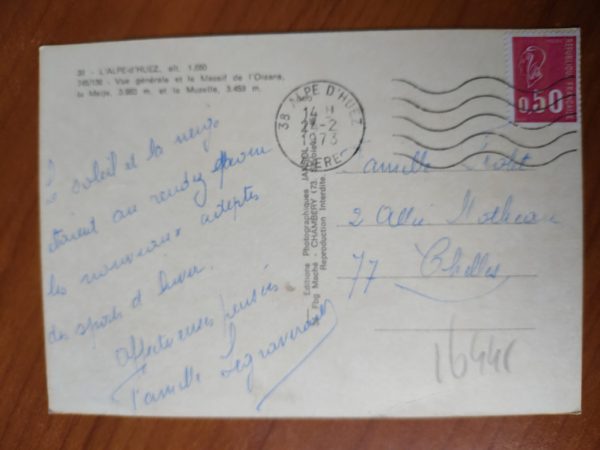 38 - L'ALPE-d'HUEZ, alt. 1.860
745/136 - Vue générale et le Massif de l'Oisans,
la Meije, 3.983 m. et le Muzelle, 3.459 m.
Le soleil et la neige
étaient au rendez
les nouveaux adeptes
des sports d'hiver.
Affectueuses pensées
Famille
Editions Photographiques
Fbg Maché - CHAMBERY (73
Reproduction Interdite
38 ALPE D'HUEZ
14 H
2
1973
ISERE
REPUBLIQUE FRANÇAISE
0,50
Famille
2 Allée
77 Chelles